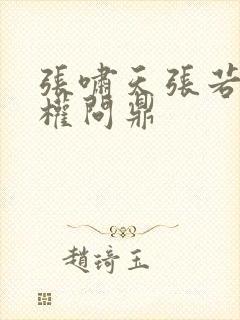 張嘯天張若
權問鼎
趙琦玉